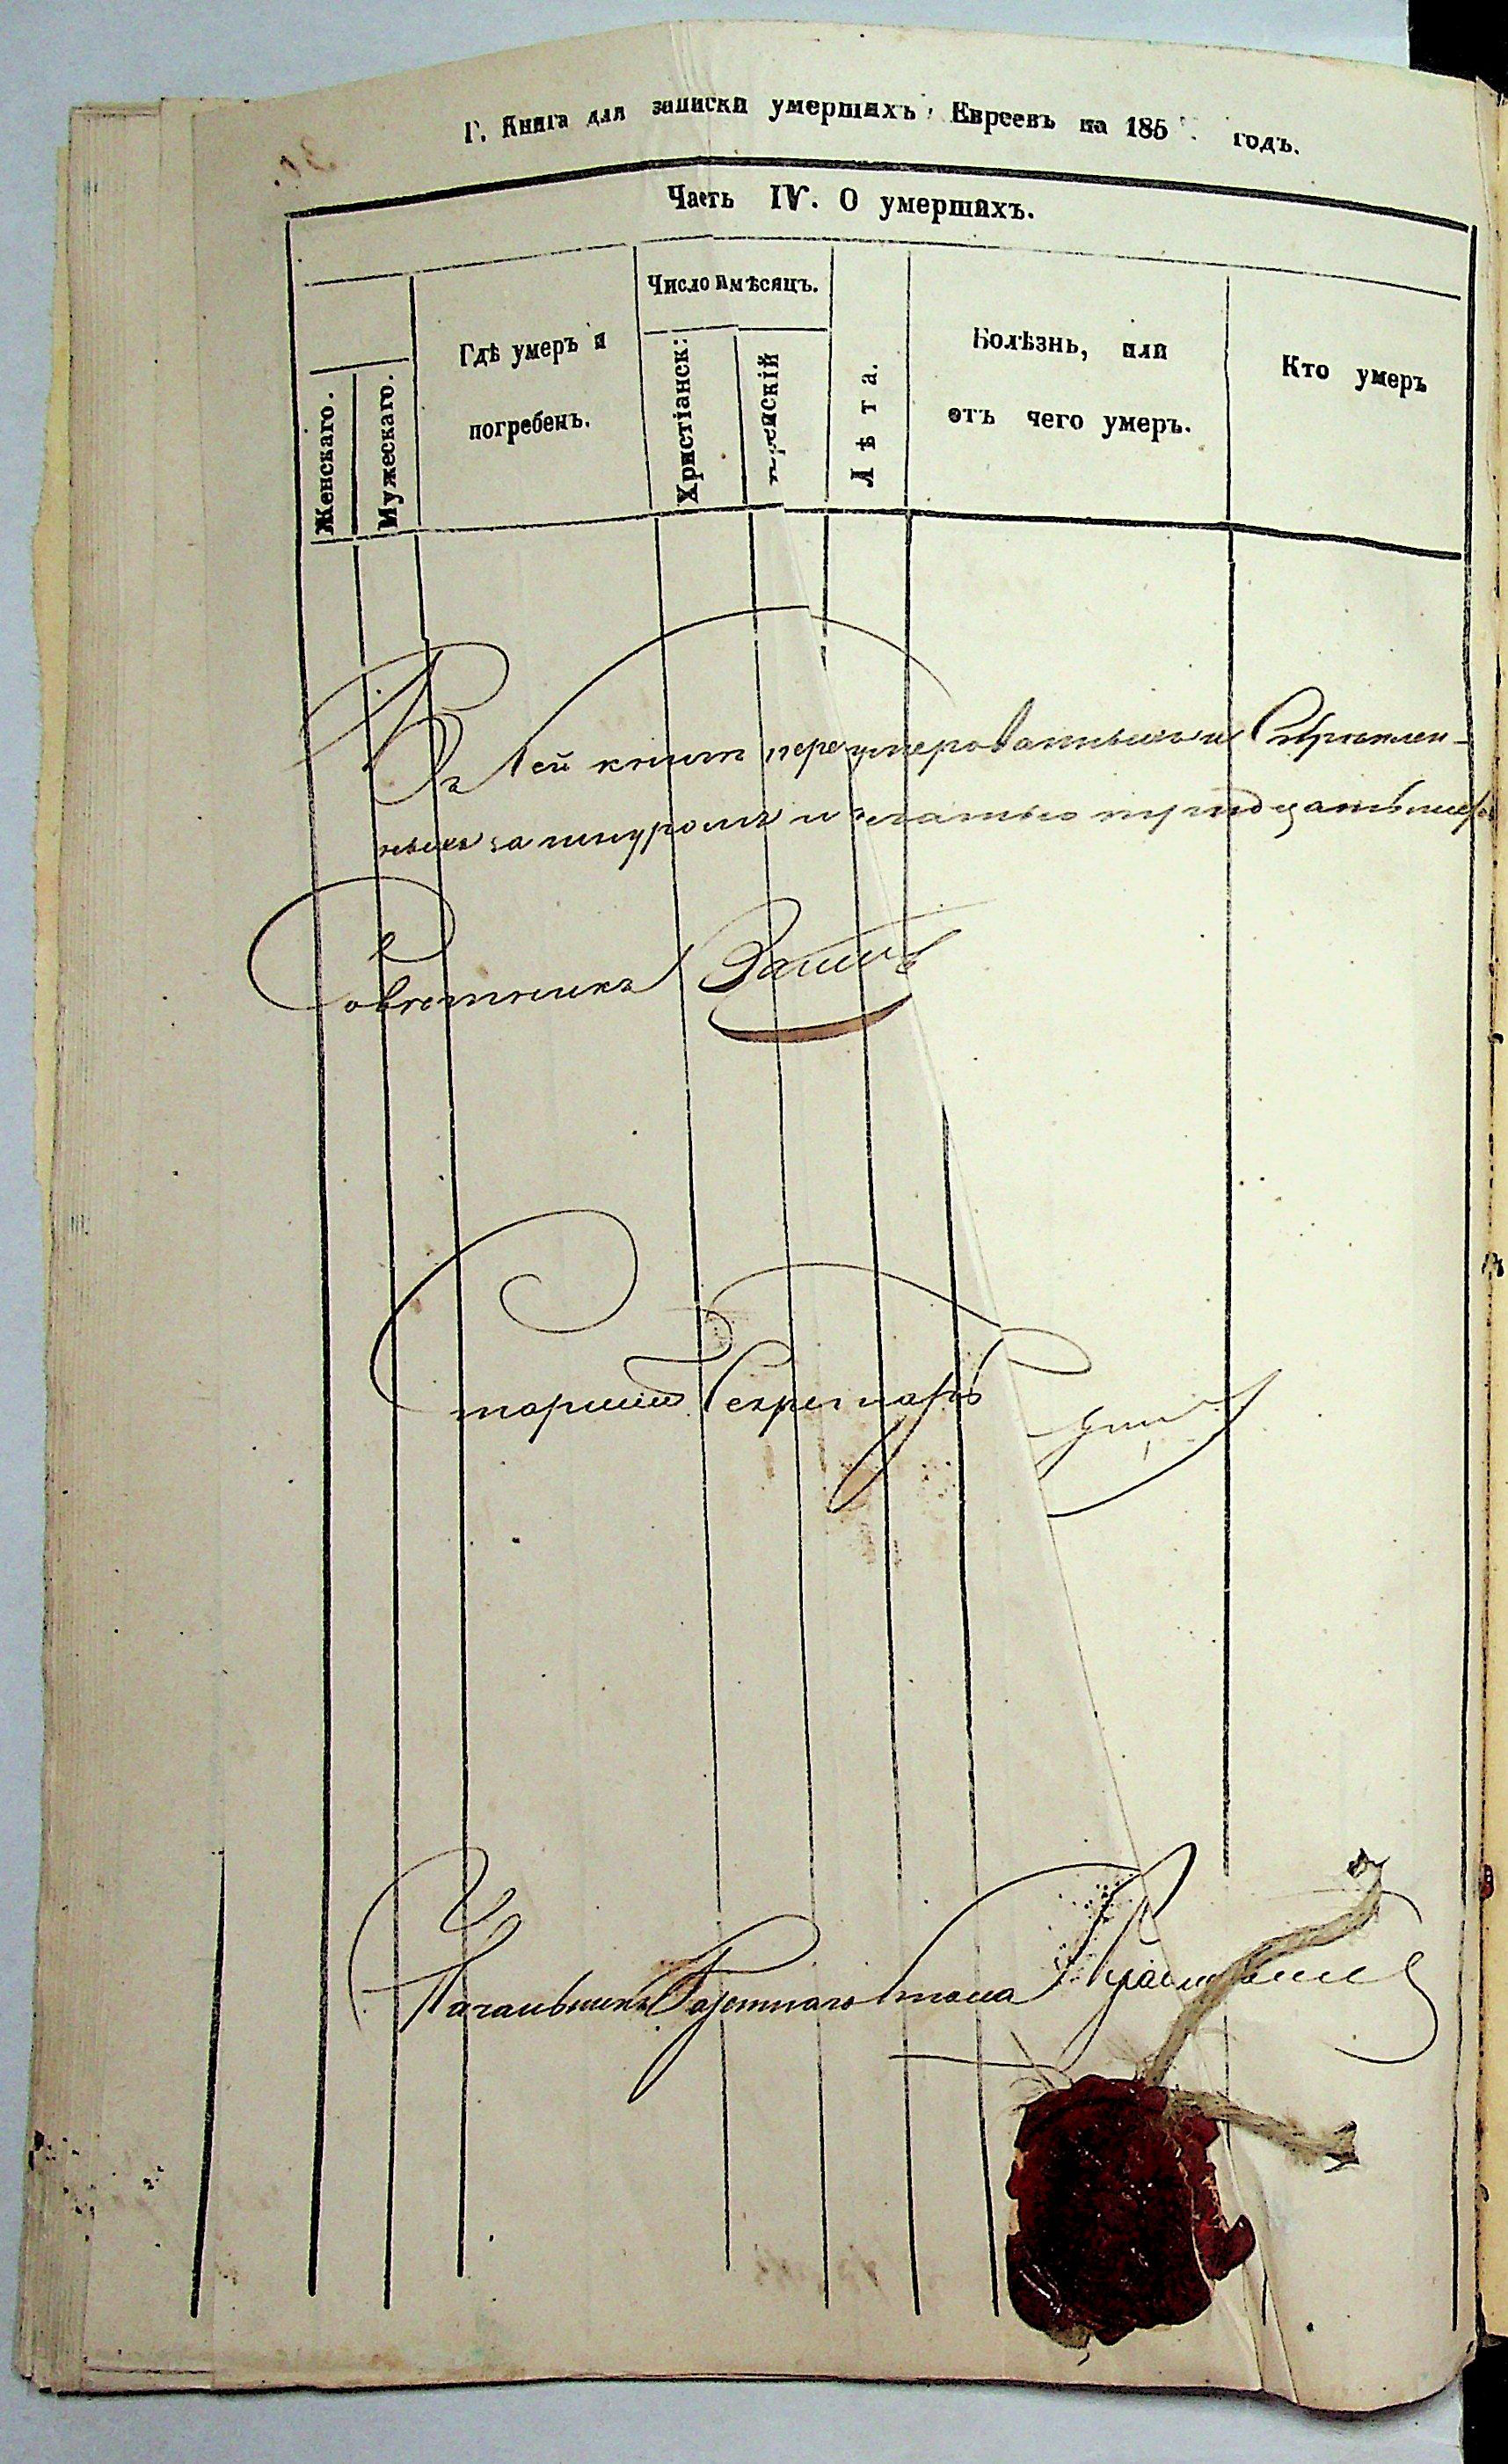 Г. Книга для записки умершихъ Евреевъ на 185 годъ.
Часть IV. О умершихъ.
Женскаго.
Мужескаго.
Гдѣ умеръ и
погребенъ.
Число и мѣсяцъ.
Христіанск:
Лѣта.
Болѣзнь, или
отъ чего умеръ.
Кто умеръ
Въ сей книгѣ перенумерованныхъ и скрѣплен-
ныхъ за шнуромъ и печатью тридцать
Совѣтникъ
Старшій Секретарь
Начальникъ Газетнаго Стола